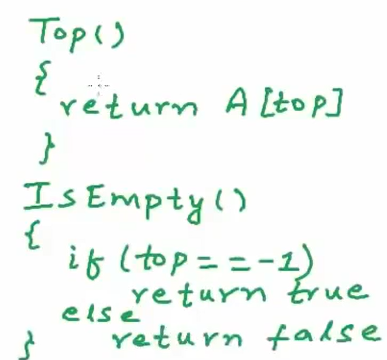 Top()
{
return A[top]
}
IsEmpty()
{
if (top == -1)
return true
else
return false
}